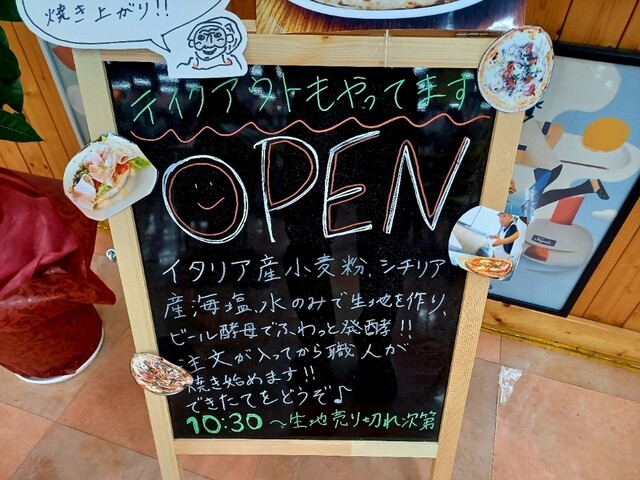 焼き上がり!!
テイクアウトもやってます
OPEN
イタリア産小麦粉、シチリア
産海塩、水のみで生地を作り、
ビール酵母でふわっと発酵!!
注文が入ってから職人が
焼き始めます!!
できたてをどうぞ♪
10:30~生地売り切れ次第